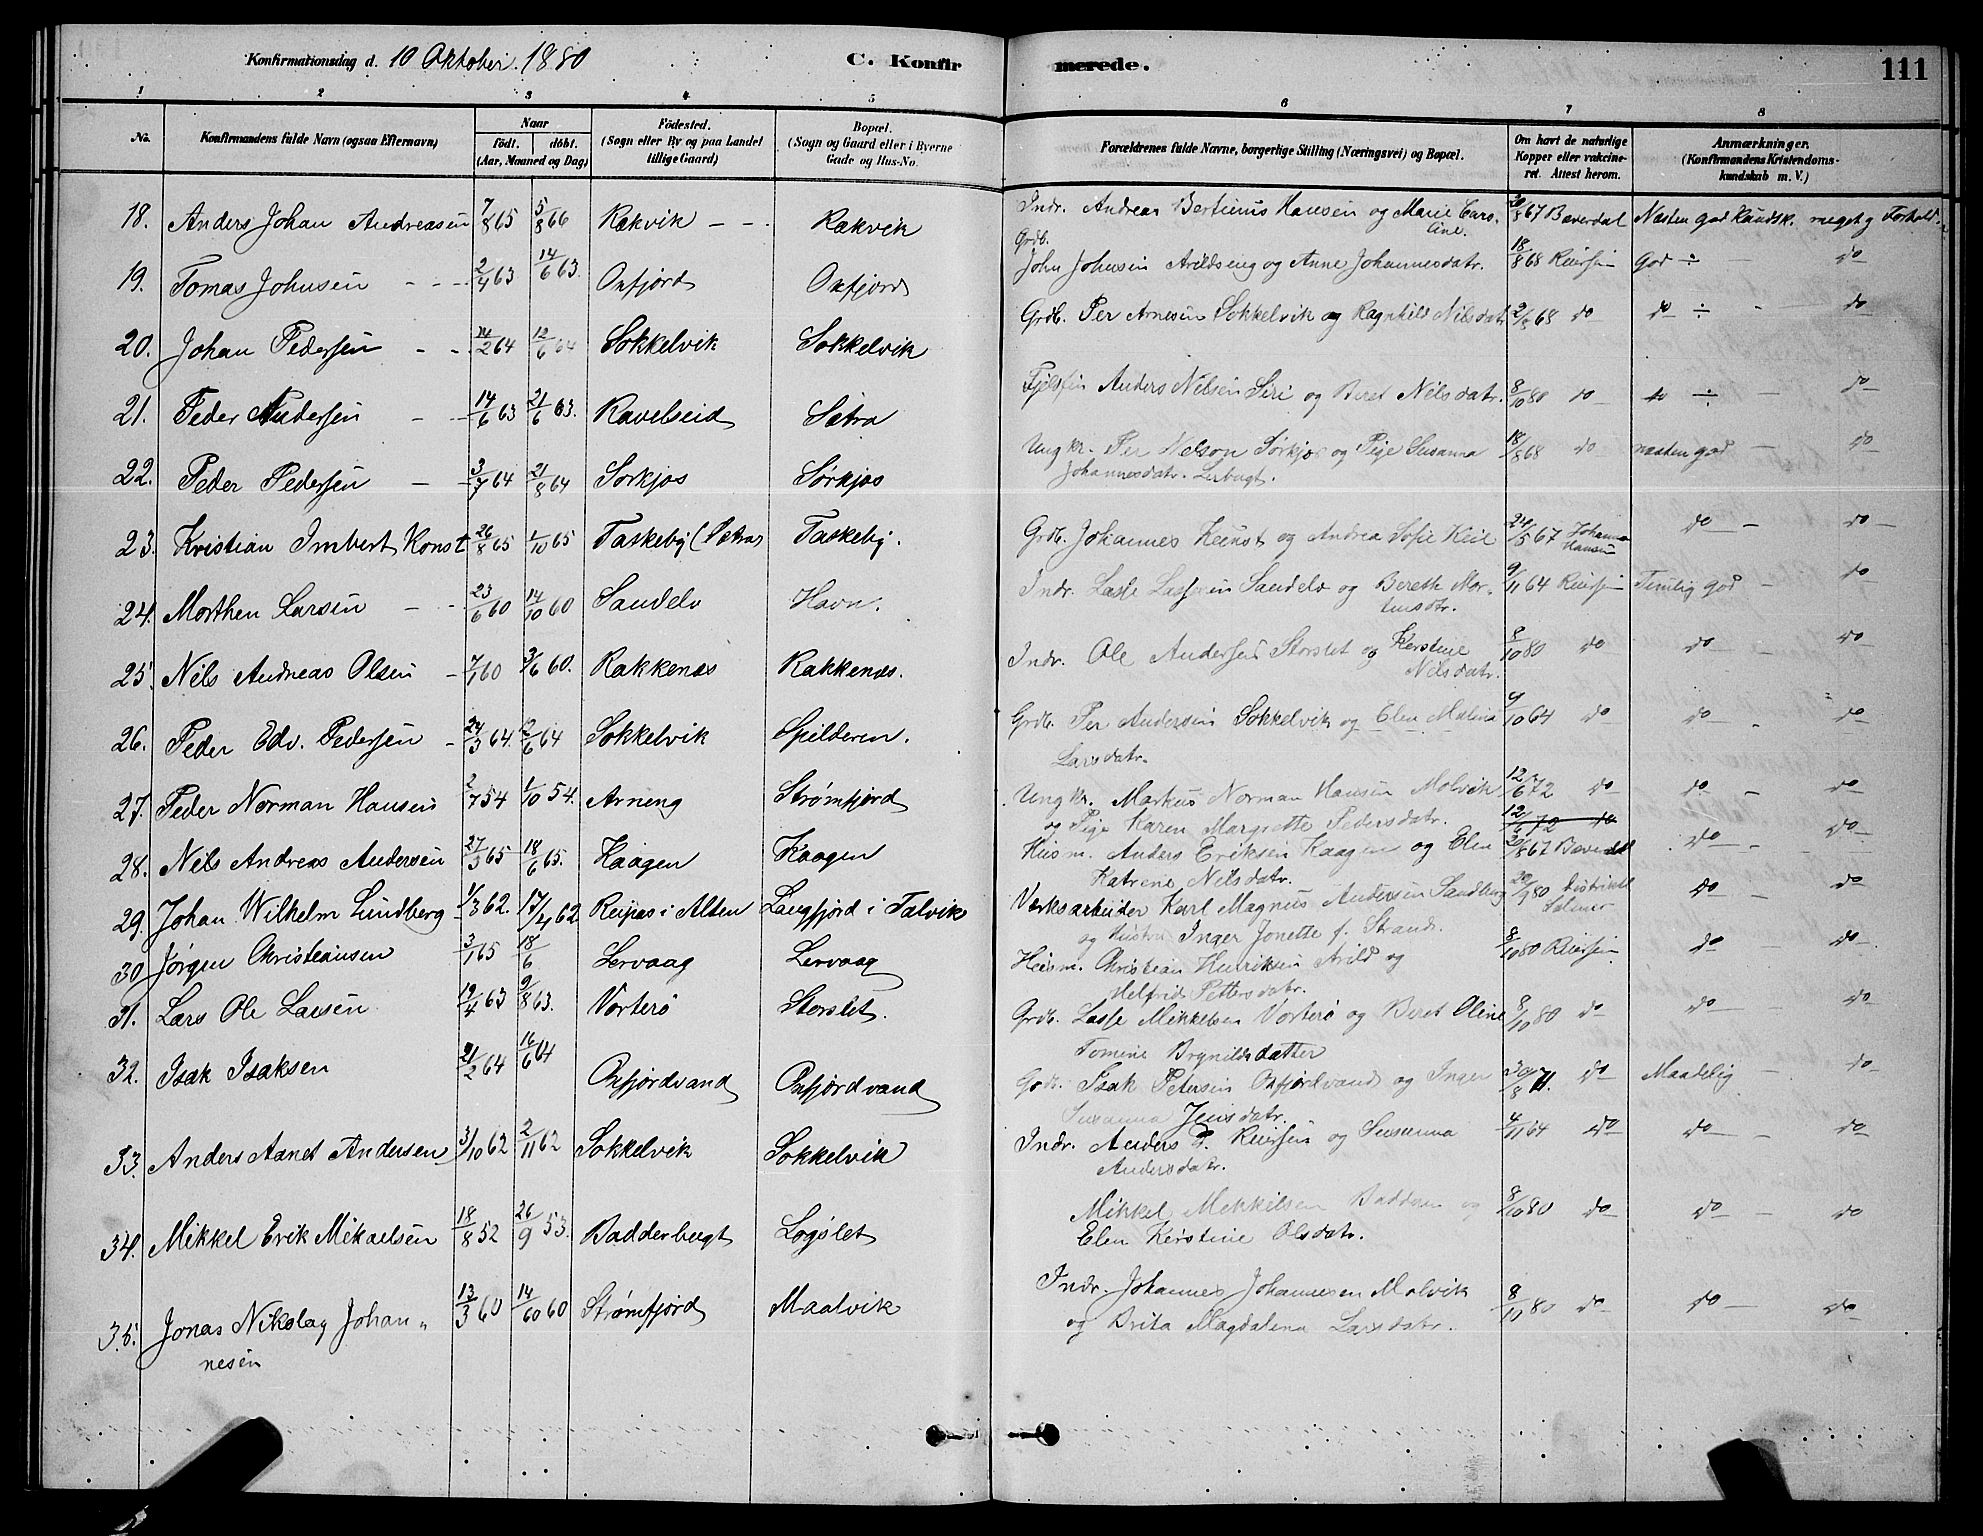 Konfirmationsdag d. 10 Oktober. 1880 C. Konfirmerede. 111
1 2 3 4 5 6 7 8
No. Konfirmandens fulde Navn (ogsaa Efternavn) Naar født. døbt. (Aar, Maaned og Dag) Födested. (Sogn eller By og paa Landet tillige Gaard) Bopæl. (Sogn og Gaard eller i Byerne Gade og Hus-No. Forældrenes fulde Navne, borgerlige Stilling (Næringsvei) og Bopæl. Om havt de naturlige Kopper eller vakcineret. Attest herom. Anmærkninger. (Konfirmandens Kristendomskundskab m. V.)
18. Anders Johan Andreasen 7/8 65 5/8 66 Rakvik - - Rakvik Indr. Andreas Bertinus Hansen og Marie Caroline. 20/8 67 Baverdal Næsten god Kundsk. meget g Forhold
19. Tomas Johnsen - - - 2/4 63 14/6 63. Oxfjord Oxfjord Grdb. John Johnsen Arildseng og Anne Johannesdatr. 18/8 68 Reiersen God ÷ do
20. Johan Pedersen - - 14/2 64 12/6 64 Sokkelvik Sokkelvik Grdb. Per Arnesen Sokkelvik og Ragnhild Nilsdatr. 2/8 68 do do ÷ - do
21. Peder Andersen - - 14/6 63 21/6 63. Ravelseid Satra Fjeldfin Anders Nilsen Siri og Beret Nilsdatr. 8/10 80 do do ÷ - do
22. Peder Pedersen - 3/7 64 21/8 64 Sorkjos Sørkjos Ungkr. Per Nelson Sørkjos og Pige Susanna Johannesdatr. Lerbugt. 18/8 68 do næsten god - do
23. Kristian Imbert Konst 26/8 65 1/10 65 Taskeby (Satra) Taskeby. Grdb. Johannes Kunst og Andrea Sofie Keil 24/5 67 Johannes Hansen do - do -
24. Morthen Larsen - - 23/6 60 14/10 60 Sandelv Havn. Indr. Lasse Lassesen Sandelv og Bereth Mortensdtr. 9/11 64 Reiersen Temlig god - do
25. Nils Andreas Olsen - 7/1 60 3/6 60. Rakkenæs Rakkenæs. Indr. Ole Andersen Storslet og Kerstine Nilsdatr. 8/10 80 do do - do
26. Peder Edv. Pedersen - 24/3 64. 12/6 64 Sokkelvik Spilderen. Grdb. Per Andersen Sokkelvik og Elen Malena Larsdatr. 9/10 64 do do - do
27. Peder Norman Hansen 2/7 54 1/10 54. Arneng Strømfjord Ungkr. Markus Norman Hansen Molvik og Pige Karen Margrette Pedersdatr. 12/6 72 do do - do
12/6 72 do
28. Nils Andreas Andersen 27/3 65 18/6 65. Kaagen Kaagen Husm. Anders Eriksen Kaagen og Elen Katrene Nilsdatr. 20/8 67 Baverdal do - do
29. Johan Wilhelm Lundberg 1/3 62. 17/4 62 Reipas i Alten Langfjord i Talvik Værksarbeider Karl Magnus Andersen Sandberg og Hustru Inger Jonette f. Strand. 20/9 80 do - do
30 Jørgen Christiansen 3/1 65 18/6 Lervaag Lervaag Husm. Christian Henriksen Arild og Helfrid Pettersdatr. 8/10 80 Reiersen do - do
31. Lars Ole Larsen 19/4 63 9/8 63. Vorterø Storslet. Grdb. Lasse Mikkelsen Vorterø og Beret Oline Tomine Brynildsdatter 8/10 80 do do - do
32. Isak Isaksen 21/2 64 16/6 64 Oxfjordvand Oxfjordvand Grdb. Isak Petersen Oxfjordvand og Inger Susanna Jensdatr. 30/8 71. do Maadelig - do
33. Anders Aanet Andersen 3/10 62 2/11 62 Sokkelvik Sokkelvik Indr. Anders P. Reiersen og Susanna Andersdatr. 4/11 64 do do - do
34. Mikkel Erik Mikaelsen 18/8 52 26/9 53. Badderbugt Logslet Mikkel Mekkelsen Badderen og Elen Kerstine Olsdatr. 8/10 80 do do - do
35. Jonas Nikolay Johannesen 13/3 60 14/60 60 Strømfjord Maalvik Indr. Johannes Johannesen Molvik og Brita Magdalena Larsdatr. 8/10 80 do do - do